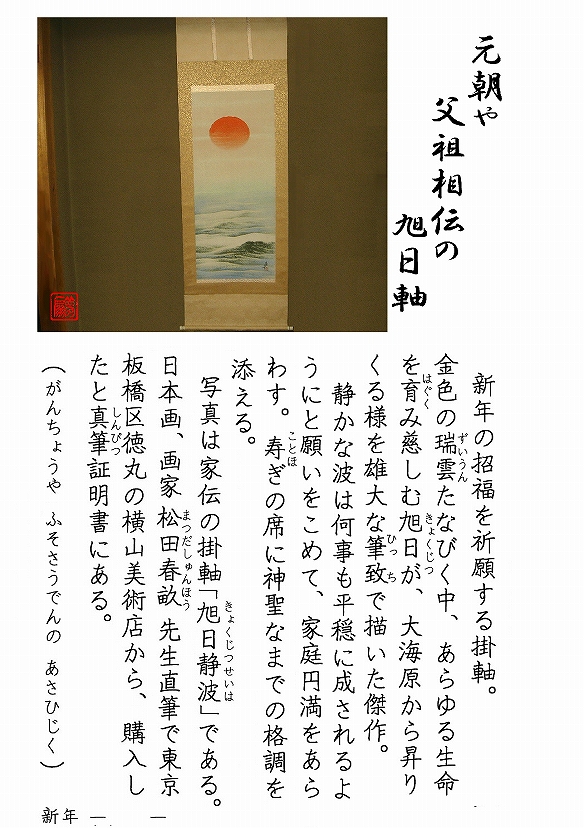 元朝や
父祖相伝の
旭日軸
新年の招福を祈願する掛軸。
金色の瑞雲たなびく中、あらゆる生命
ずいうん
を育み慈しむ旭日が、大海原から昇り
はぐく
きょくじつ
くる様を雄大な筆致で描いた傑作。
ひっち
静かな波は何事も平穏に成されるよ
うにと願いをこめて、家庭円満をあら
わす。寿ぎの席に神聖なまでの格調を
ことほ
添える。
写真は家伝の掛軸「旭日静波」である。
きょくじつせいは
日本画、画家 松田春畝 先生直筆で東京
まつだしゅんほう
板橋区徳丸の横山美術店から、購入し
たと真筆証明書にある。
しんぴつ
（がんちょうや ふそさうでんの あさひじく）
新年